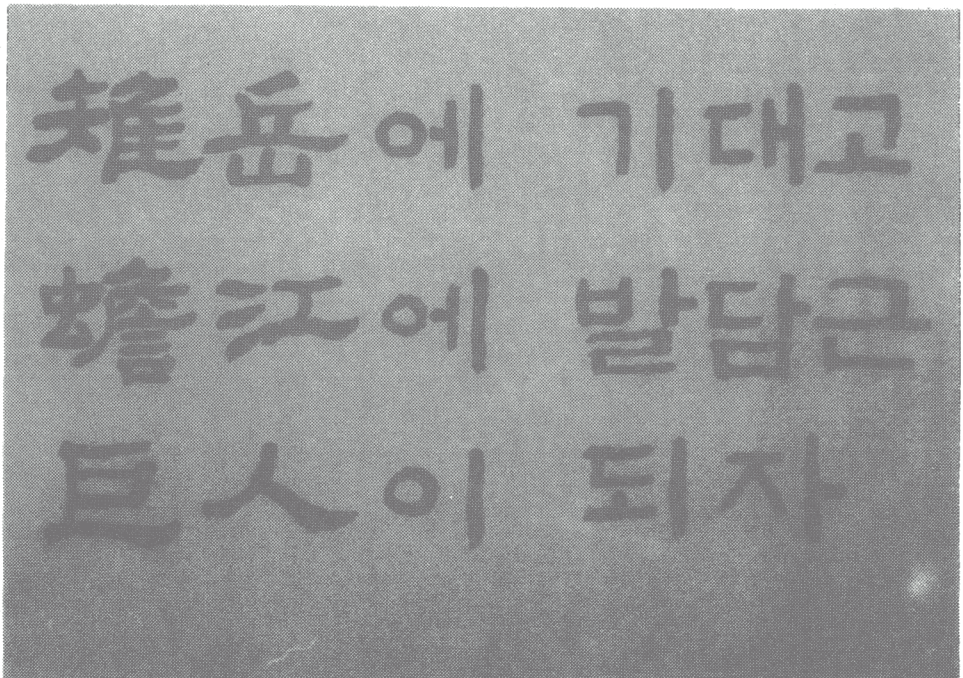 雉岳에 기대고
蟾江에 발담근
巨人이 되자